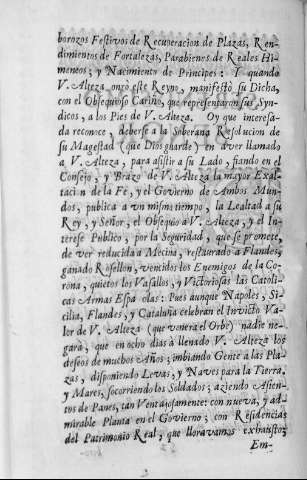 borozos Festivos de Recuperacion de Plazas, Ren-
dimientos de Fortalezas, Parabienes de Reales Hi-
meneos; y Nacimiento de Principes: Y quando
V. Alteza onrò este Reyno, manifestò su Dicha,
con el Obsequioso Cariño, que representaron sus Syn-
dicos, a los Pies de V. Alteza. Oy que interesa-
da reconoce, deberse a la Soberana Resolucion de
su Magestad (que Dios guarde) en aver llamado
a V. Alteza, para asistir a su Lado, fiando en el
Consejo, y Brazo de V. Alteza la mayor Exal-
taci n de la Fè, y el Govierno de Ambos Mun-
dos, publica a un mismo tiempo, la Lealtad a su
Rey, y Señor, el Obsequio a V. Alteza, y el In-
terese Publico, por la Seguridad, que se promete,
de ver reducida a Mecina, restaurado a Flandes,
ganado Rosellon, vencidos los Enemigos de la Co-
rona, quietos los Vasallos, y Victoriosas las Catoli-
cas Armas Espa olas: Pues aunque Napoles, Si-
cilia, Flandes, y Cataluña celebran el Invicto Va-
lor de V. Alteza (que venera el Orbe) nadie ne-
garà, que en ocho dias à llenado V. Alteza los
deseos de muchos Años; imbiando Gente a las Pla-
zas, disponiendo Levas, y Naves para la Tierra,
y Mares, socorriendo los Soldados; aziendo Asien-
tos de Panes, tan Ventajosamente: con nueva, y ad-
mirable Planta en el Govierno; con Residencias
del Patrimonio Real, que lloravamos exhausto;
Em-